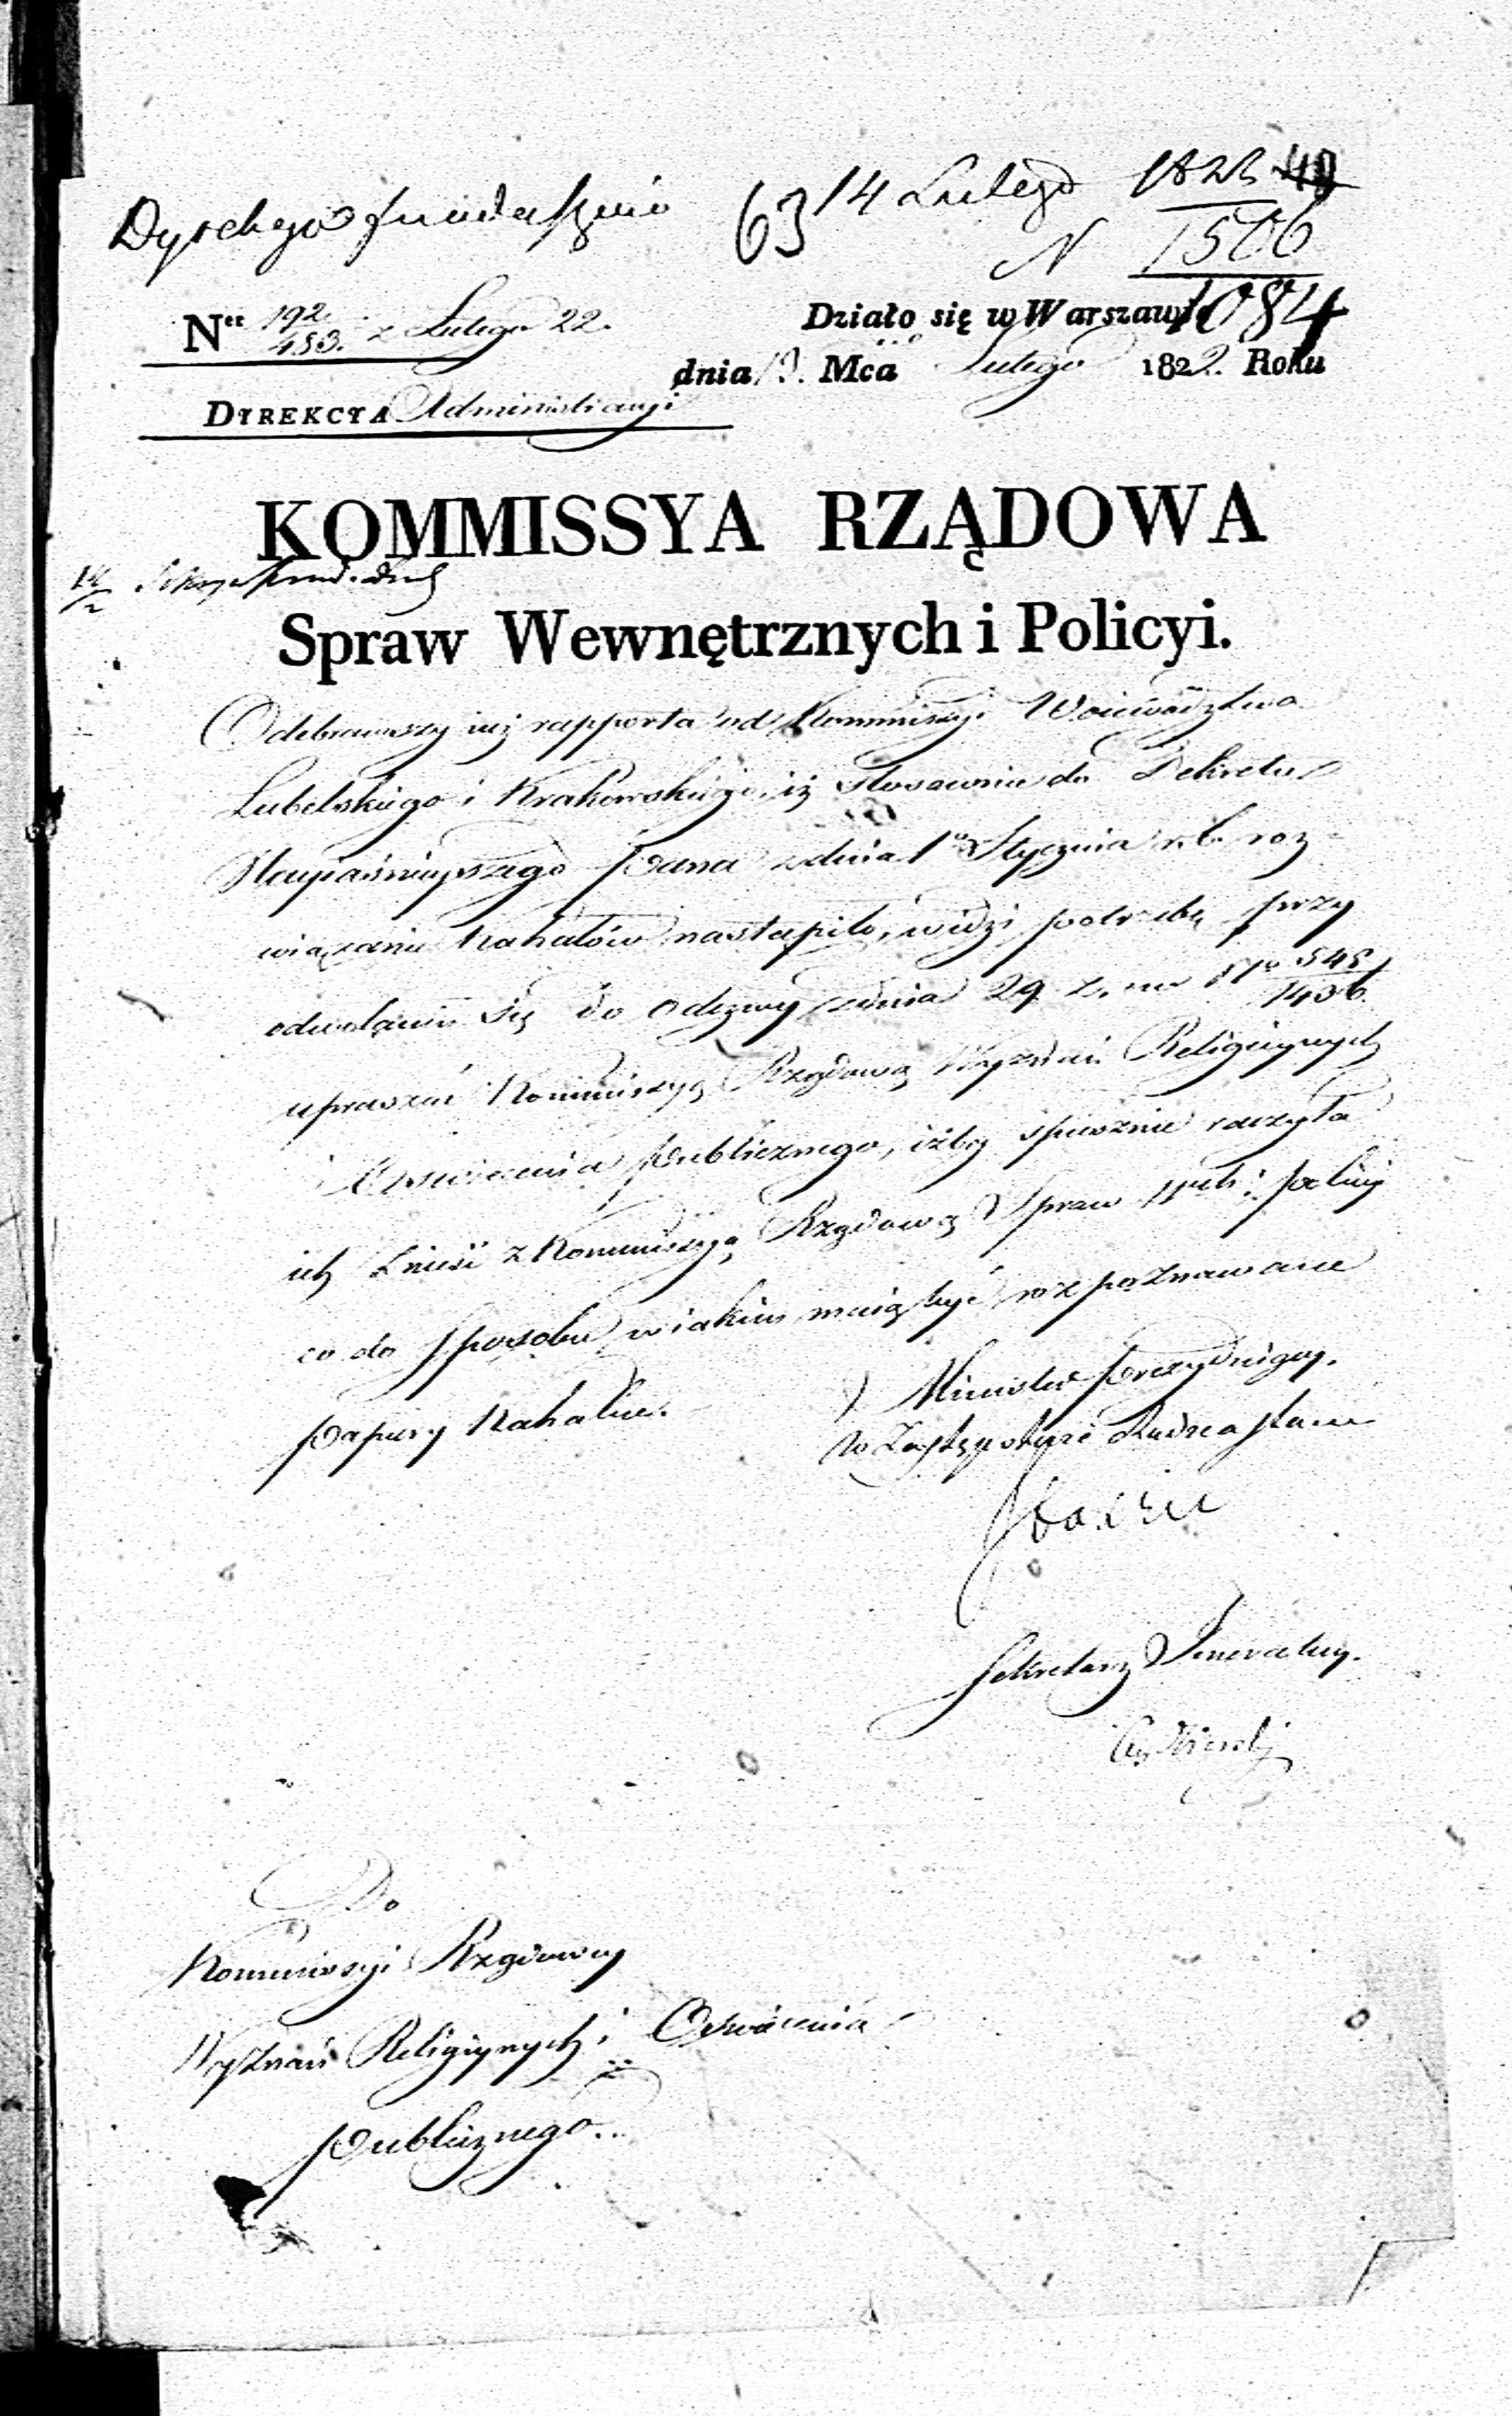 63 14 Lutego 1822
N 1506
1084
Ner 192/483. z Lutego 22.
Działo się w Warszawie
dnia 13. Mca Lutego 1822. Roku
DYREKCYA Administracyi
KOMMISSYA RZĄDOWA
Spraw Wewnętrznych i Policyi.
Odebrawszy iuż rapporta od Kommissyi Woiewództwa
Lubelskiego i Krakowskiego, iż stosownie do Dekretu
Nayiaśnieyszego Pana z dnia 1go Stycznia r. b. roz=
wiązanie Kahałów nastąpiło, widzi potrzebę przy
odwołaniu się do odezwy z dnia 29 z. m. No 545/1436.
upraszać Kommissyę Rządową Wyznań Religiynych
i Oświecenia Publicznego, iżby spiesznie raczyła
się znieść z Kommissyą Rządową Spraw Wew: i Policyi
co do sposobu w iakim maią być rozpoznawane
papiery Kahalne.
Minister Prezyduiący.
w Zastępstwie Radca Stanu
Sekretarz Jeneralny.
Do
Kommissyi Rządowey
Wyznań Religiynych i Oświecenia
Publicznego.